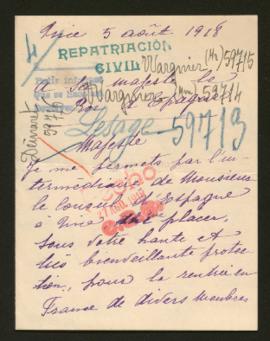 Nice 5 août 1918
REPATRIACIÓN
CIVIL
Warquier (Mr) 59715
A Sa majesté le
Roi d'Espagne
Warquier (Mme) 59714
Lesage 59713
59712
Majesté
Je me permets par l'in-
termédiaire de Monsieur
le Consul d'Espagne
à Nice de placer,
sous votre haute et
très bienveillante protec-
tion, pour la rentrée en
France de divers membres